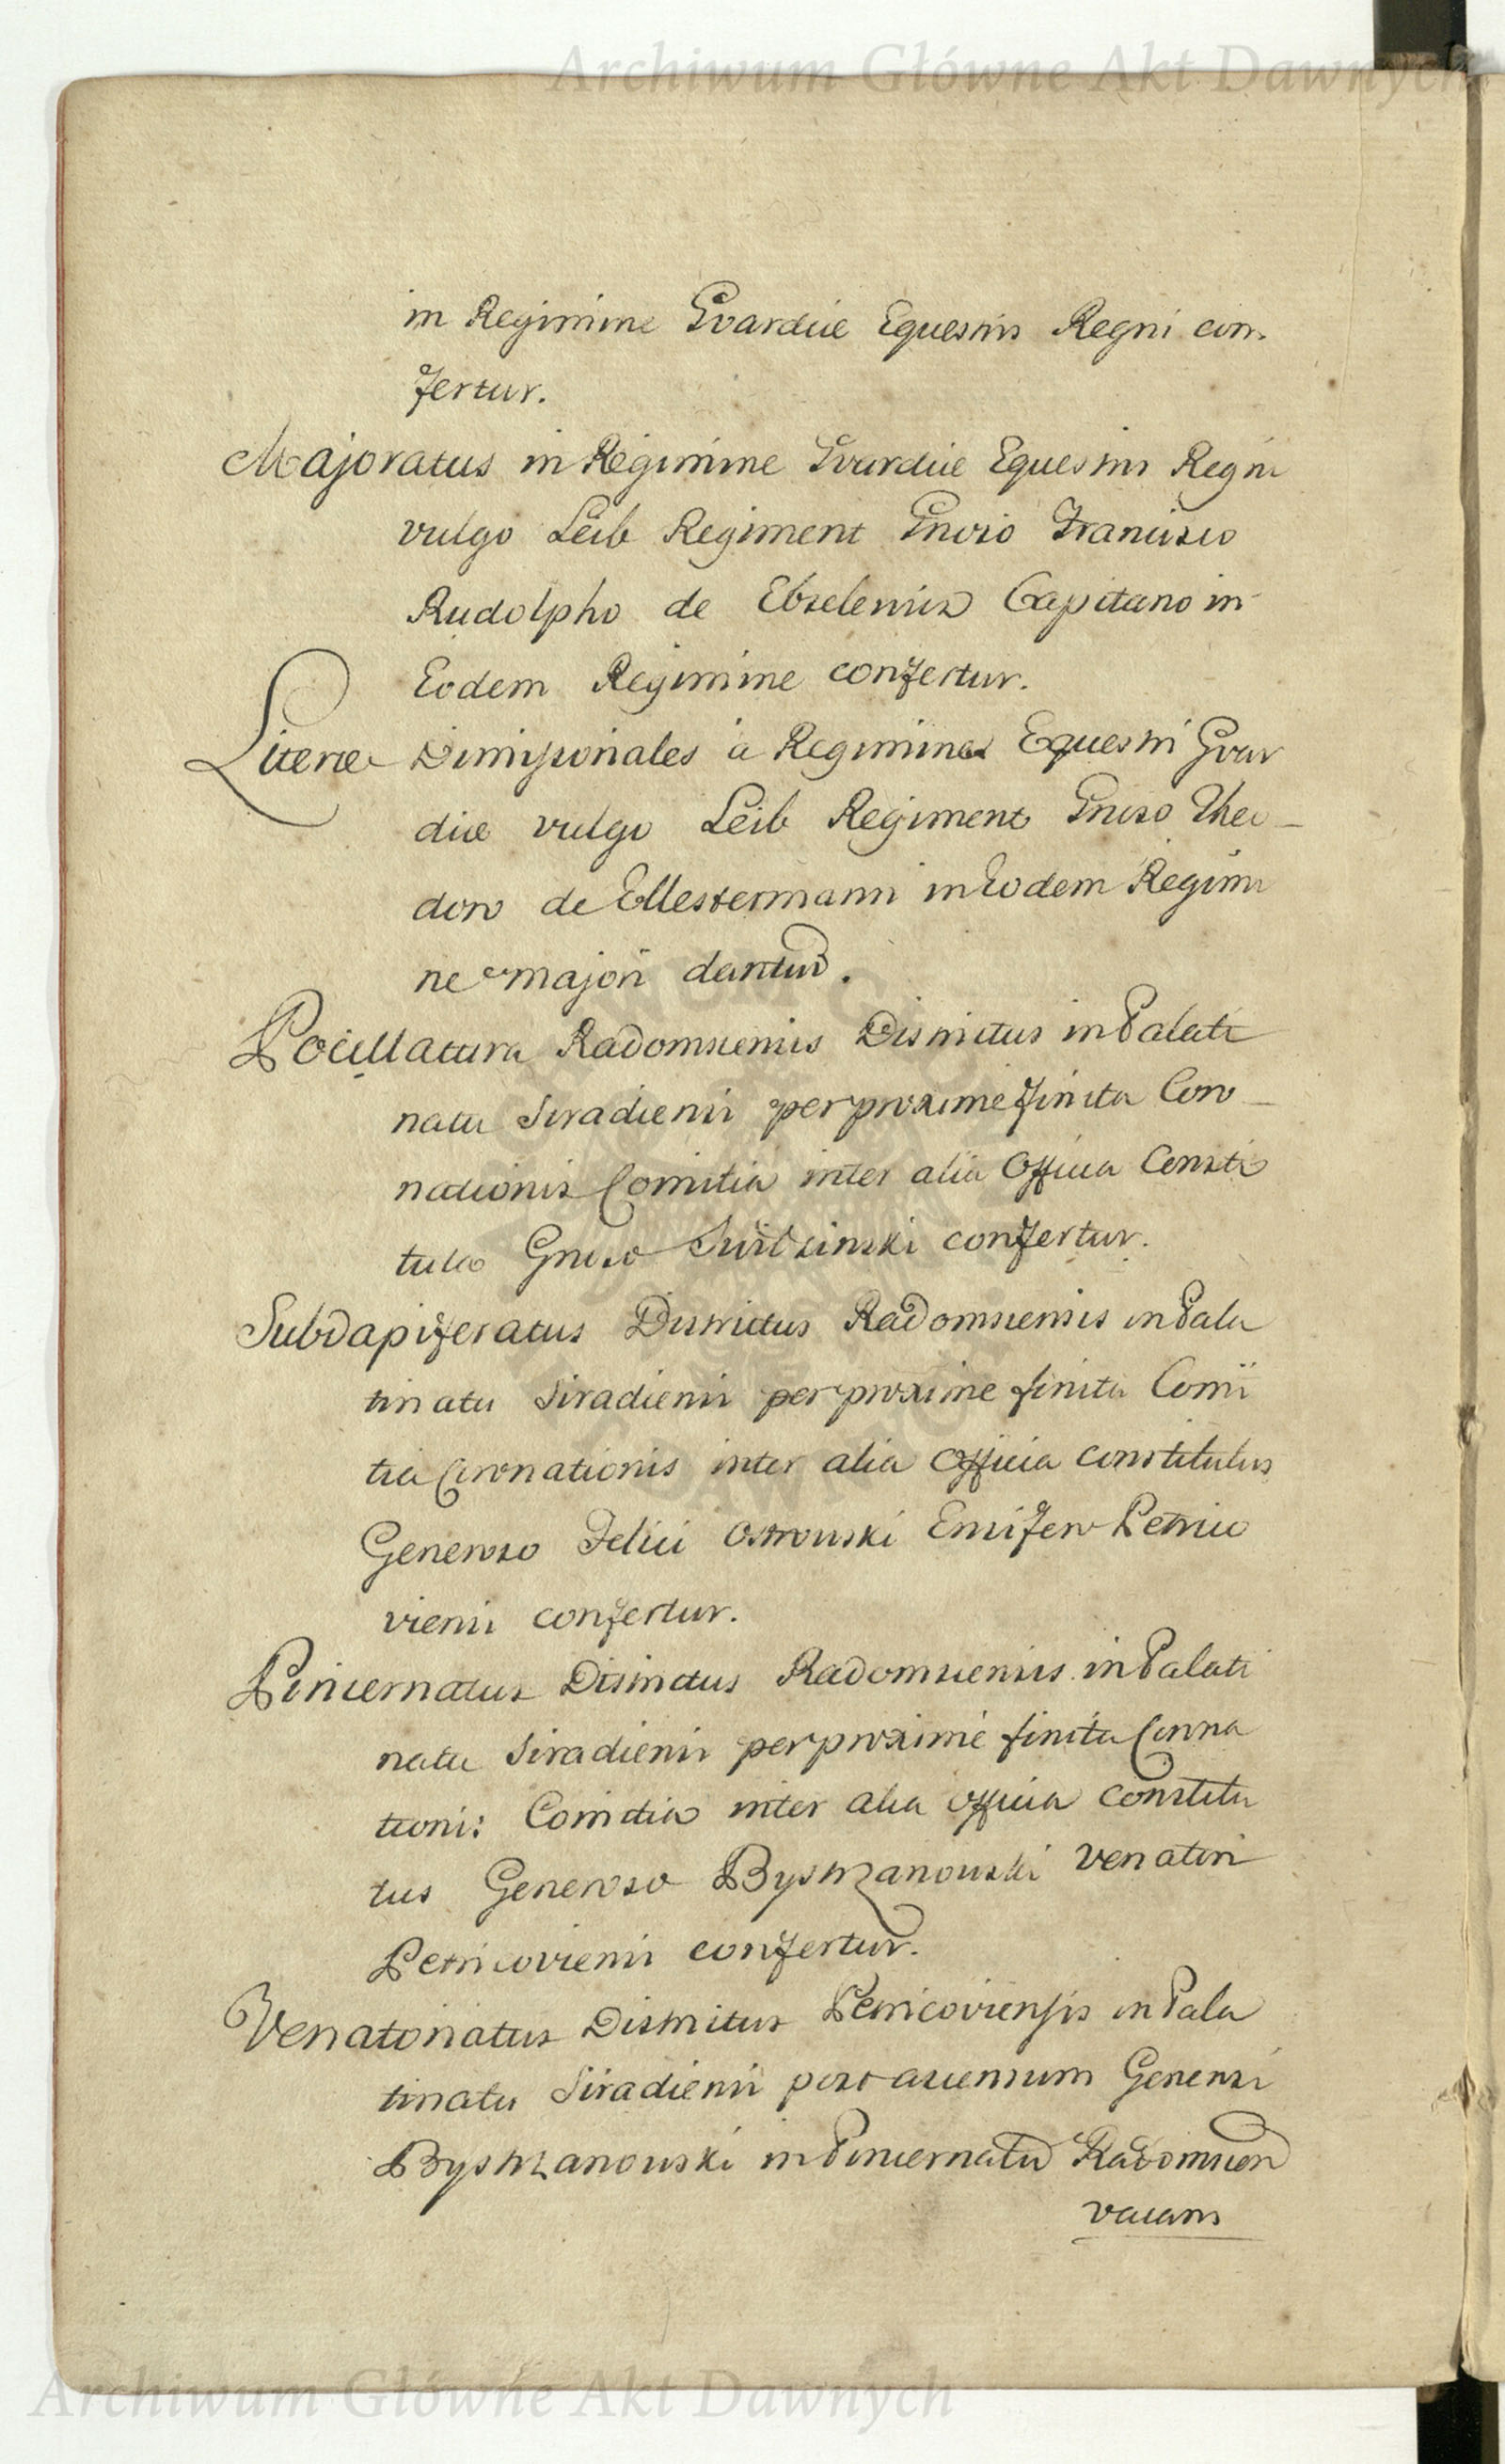 Archiwum Główne Akt Dawnych
in Regimine Gvardiæ Equestris Regni con-
fertur.
Majoratus in Regimine Gvardiæ Equestris Regni
vulgo Leib Regiment Gnoso Francisco
Rudolpho de Capitano in
Eodem Regimine confertur.
Literæ Dimissoriales a Regimine Equestri Gvar
diæ vulgo Leib Regiment Gnoso Theo-
doro de Ellestermann in Eodem Regimi
ne majori dantur.
Pocillatura Radomscensis Districtus in Palati
natu Siradiensi per proxime finita Coro-
nationis Comitia inter alia Officia Consti
tuta Gnoso confertur.
Subdapiferatus Districtus Radomscensis in Pala
tinatu Siradiensi per proxime finita Comi
tia Coronationis inter alia Officia constitutus
Generoso Felici Ostrowski Ensifero Petrico
viensi confertur.
Pincernatus Districtus Radomscensis in Palati
natu Siradiensi per proxime finita Corona
tioni: Comitia inter alia officia constitu
tus Generoso Bystrzanowski Venatori
Petricoviensi confertur.
Venatoriatus Districtus Petricoviensis in Pala
tinatu Siradiensi post ascensum Generosi
Bystrzanowski in Pincernatu Radomscen
vacans
Archiwum Główne Akt Dawnych